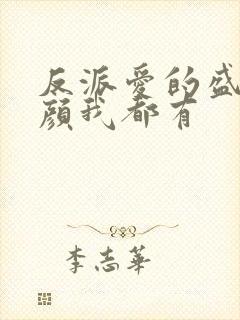 反派愛的盛
顏我都有
李志華